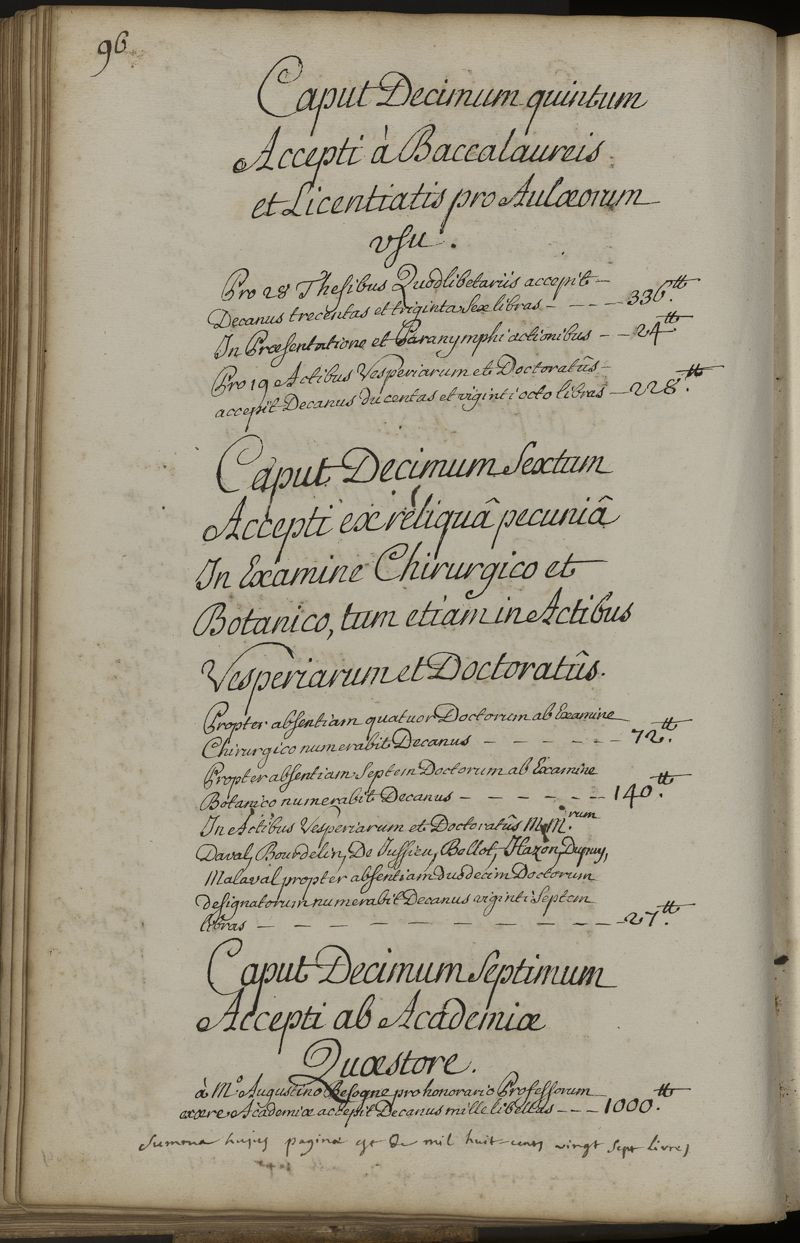 96
Caput Decimum quintum
Accepti à Baccalaureis
et Licentiatis pro Aulæorum
vsu.
Pro 28 Thesibus Quodlibetariis accepit –
Decanus trecentas et triginta Sex libras – – – – 336.tt
In Præsentatione et Paranymphi actionibus – – 24.tt
Pro 19 Actibus Vesperiarum et Doctoratûs –
accepit Decanus ducentas et viginti octo libras – 228.tt
Caput Decimum Sextum
Accepti ex réliquâ pecuniâ
In Examine Chirurgico et
Botanico, tum etiam in Actibus
Vesperiarum et Doctoratûs.
Propter absentiam quatuor Doctorum ab Examine
Chirurgico numerabit Decanus – – – – – – 72.tt
Propter absentiam Septem Doctorum ab Examine
Botanico numerabit Decanus – – – – – – 140.tt
In Actibus Vesperiarum et Doctoratûs M.M.rum
Daval, Bourdelin, De Jussieu, Bellot, Hazon, Dupuy,
Malaval propter absentiam duodecim Doctorum
designatorum numerabit Decanus viginti Septem
libras – – – – – – – – – – 27.tt
Caput Decimum Septimum
Accepti ab Academiæ
Quæstore.
à M.o Augustino Besogne pro honorario Professorum
ex ære Academiæ accepit Decanus mille libellas – – – 1000.tt
Summa hujus paginæ est de mil huit-cents vingt sept livres